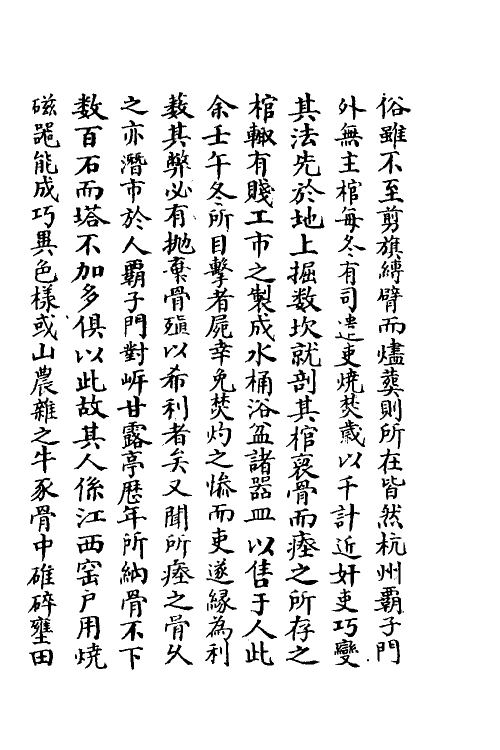 俗雖不至剪旗縛臂而燼葬則所在皆然杭州霸子門
外無主棺每冬有司遣吏燒焚歲以千計近奸吏巧變
其法先於地上掘数坎就剖其棺裒骨而瘞之所存之
棺輙有賤工市之製成水桶浴盆諸器皿以售于人此
余壬午冬所目擊者屍幸免焚灼之慘而吏遂緣為利
薮其弊必有拋棄骨殖以希利者矣又聞所瘞之骨久
之亦潛市於人霸子門對岍甘露亭歷年所納骨不下
数百石而塔不加多俱以此故其人係江西窑户用燒
磁噐能成巧異色樣或山農雜之牛豕骨中碓碎壅田